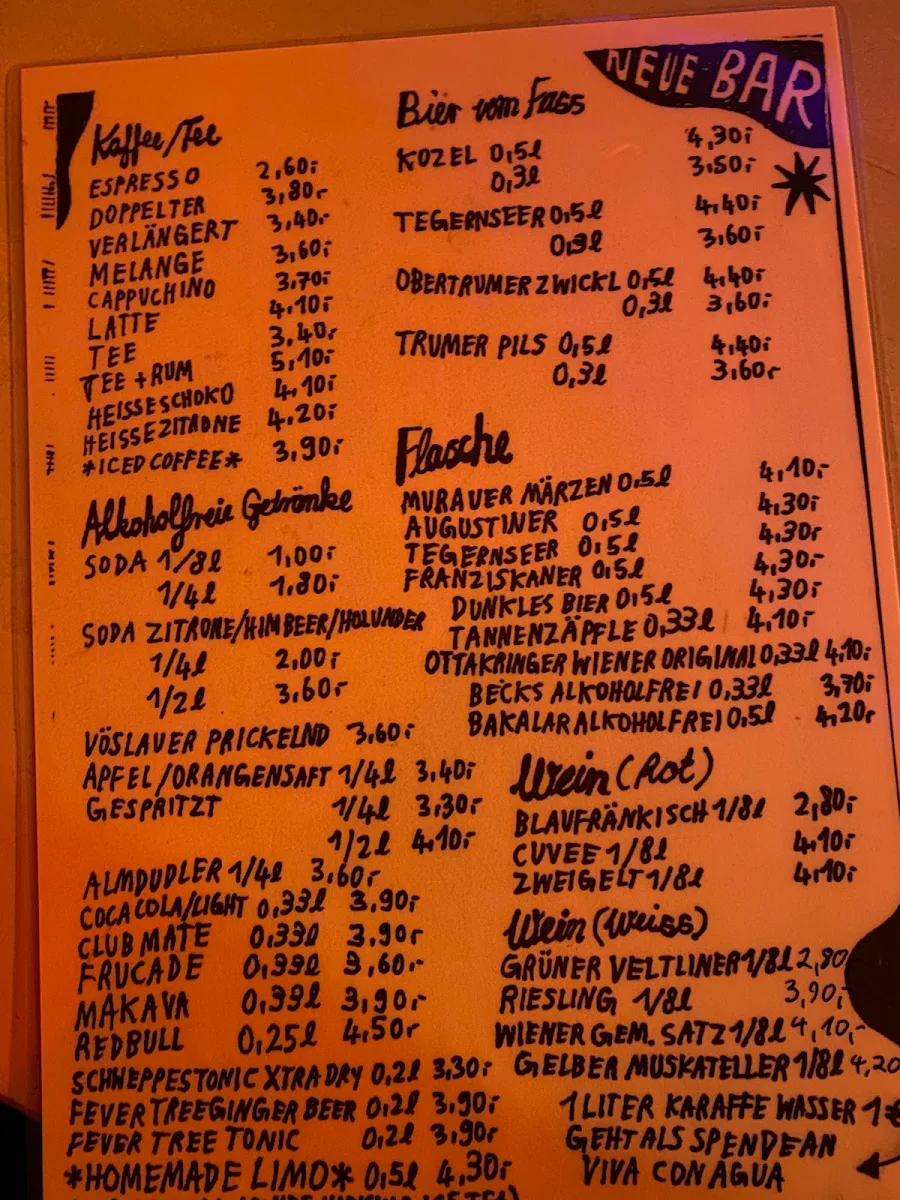 NEUE BAR
Kaffee/Tee
ESPRESSO 2,60,-
DOPPELTER 3,80,-
VERLÄNGERT 3,40,-
MELANGE 3,60,-
CAPPUCHINO 3,70,-
LATTE 4,10,-
TEE 3,40,-
TEE + RUM 5,10,-
HEISSE SCHOKO 4,10,-
HEISSE ZITRONE 4,20,-
*ICED COFFEE* 3,90,-
Alkoholfreie Getränke
SODA 1/8l 1,00,-
1/4l 1,80,-
SODA ZITRONE/HIMBEER/HOLUNDER
1/4l 2,00,-
1/2l 3,60,-
VÖSLAUER PRICKELND 3,60,-
APFEL/ORANGENSAFT 1/4l 3,40,-
GESPRITZT 1/4l 3,30,-
1/2l 4,10,-
ALMDUDLER 1/4l 3,60,-
COCA COLA/LIGHT 0,33l 3,90,-
CLUB MATE 0,33l 3,90,-
FRUCADE 0,33l 3,60,-
MAKAVA 0,33l 3,90,-
REDBULL 0,25l 4,50,-
SCHWEPPES TONIC XTRA DRY 0,2l 3,30,-
FEVER TREE GINGER BEER 0,2l 3,90,-
FEVER TREE TONIC 0,2l 3,90,-
*HOMEMADE LIMO* 0,5l 4,30,-
Bier vom Fass
KOZEL 0,5l 4,30,-
0,3l 3,50,-
TEGERNSEER 0,5l 4,40,-
0,3l 3,60,-
OBERTRUMER ZWICKL 0,5l 4,40,-
0,3l 3,60,-
TRUMER PILS 0,5l 4,40,-
0,3l 3,60,-
Flasche
MURAUER MÄRZEN 0,5l 4,10,-
AUGUSTINER 0,5l 4,30,-
TEGERNSEER 0,5l 4,30,-
FRANZISKANER 0,5l 4,30,-
DUNKLES BIER 0,5l 4,30,-
TANNENZÄPFLE 0,33l 4,10,-
OTTAKRINGER WIENER ORIGINAL 0,33l 4,10,-
BECKS ALKOHOLFREI 0,33l 3,70,-
BAKALAR ALKOHOLFREI 0,5l 4,20,-
Wein (Rot)
BLAUFRÄNKISCH 1/8l 2,80,-
CUVEE 1/8l 4,10,-
ZWEIGELT 1/8l 4,10,-
Wein (Weiss)
GRÜNER VELTLINER 1/8l 2,80
RIESLING 1/8l 3,90,-
WIENER GEM. SATZ 1/8l 4,10,-
GELBER MUSKATELLER 1/8l 4,20
1 LITER KARAFFE WASSER 1€
GEHT ALS SPENDE AN
VIVA CON AGUA